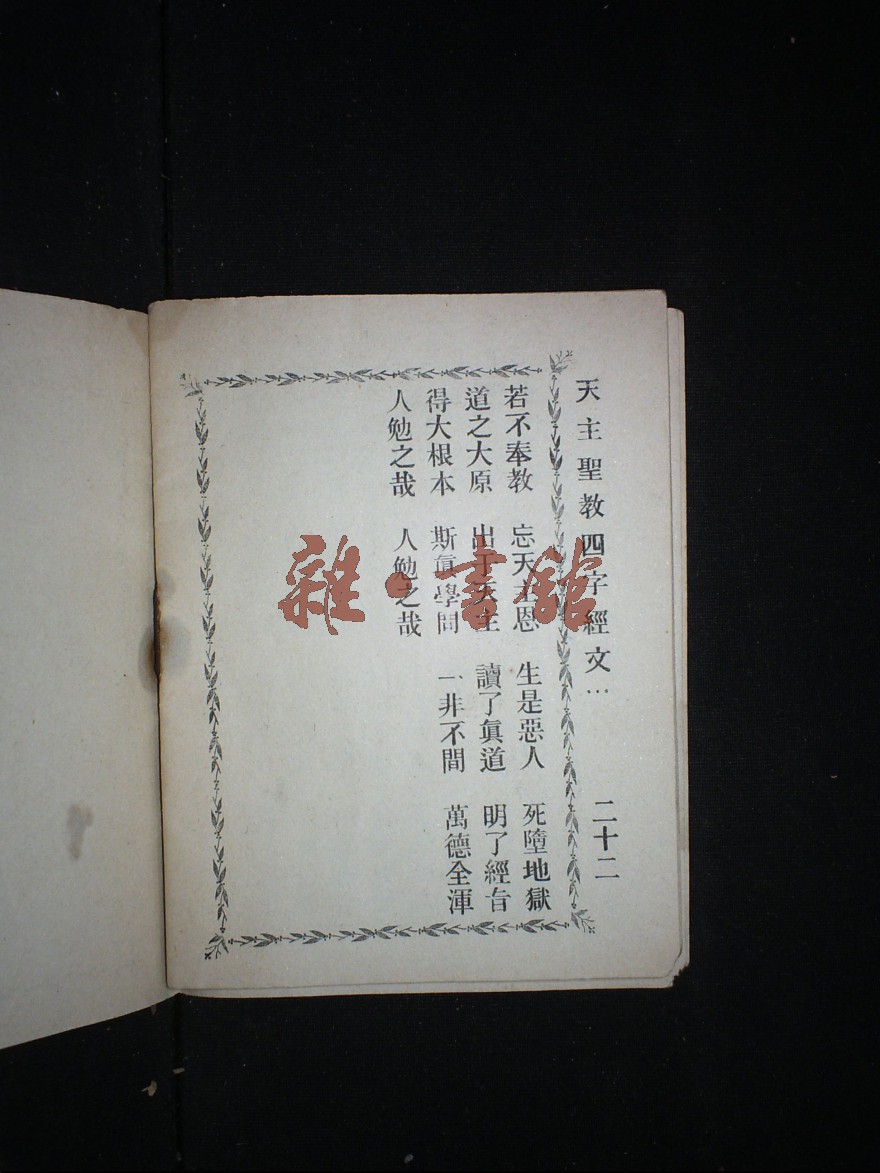 天主聖教四字經文… 二十二
若不奉教 忘天主恩 生是惡人 死墮地獄
道之大原 出于天主 讀了眞道 明了經旨
得大根本 斯眞學問 一非不間 萬德全渾
人勉之哉 人勉之哉
雜·書館